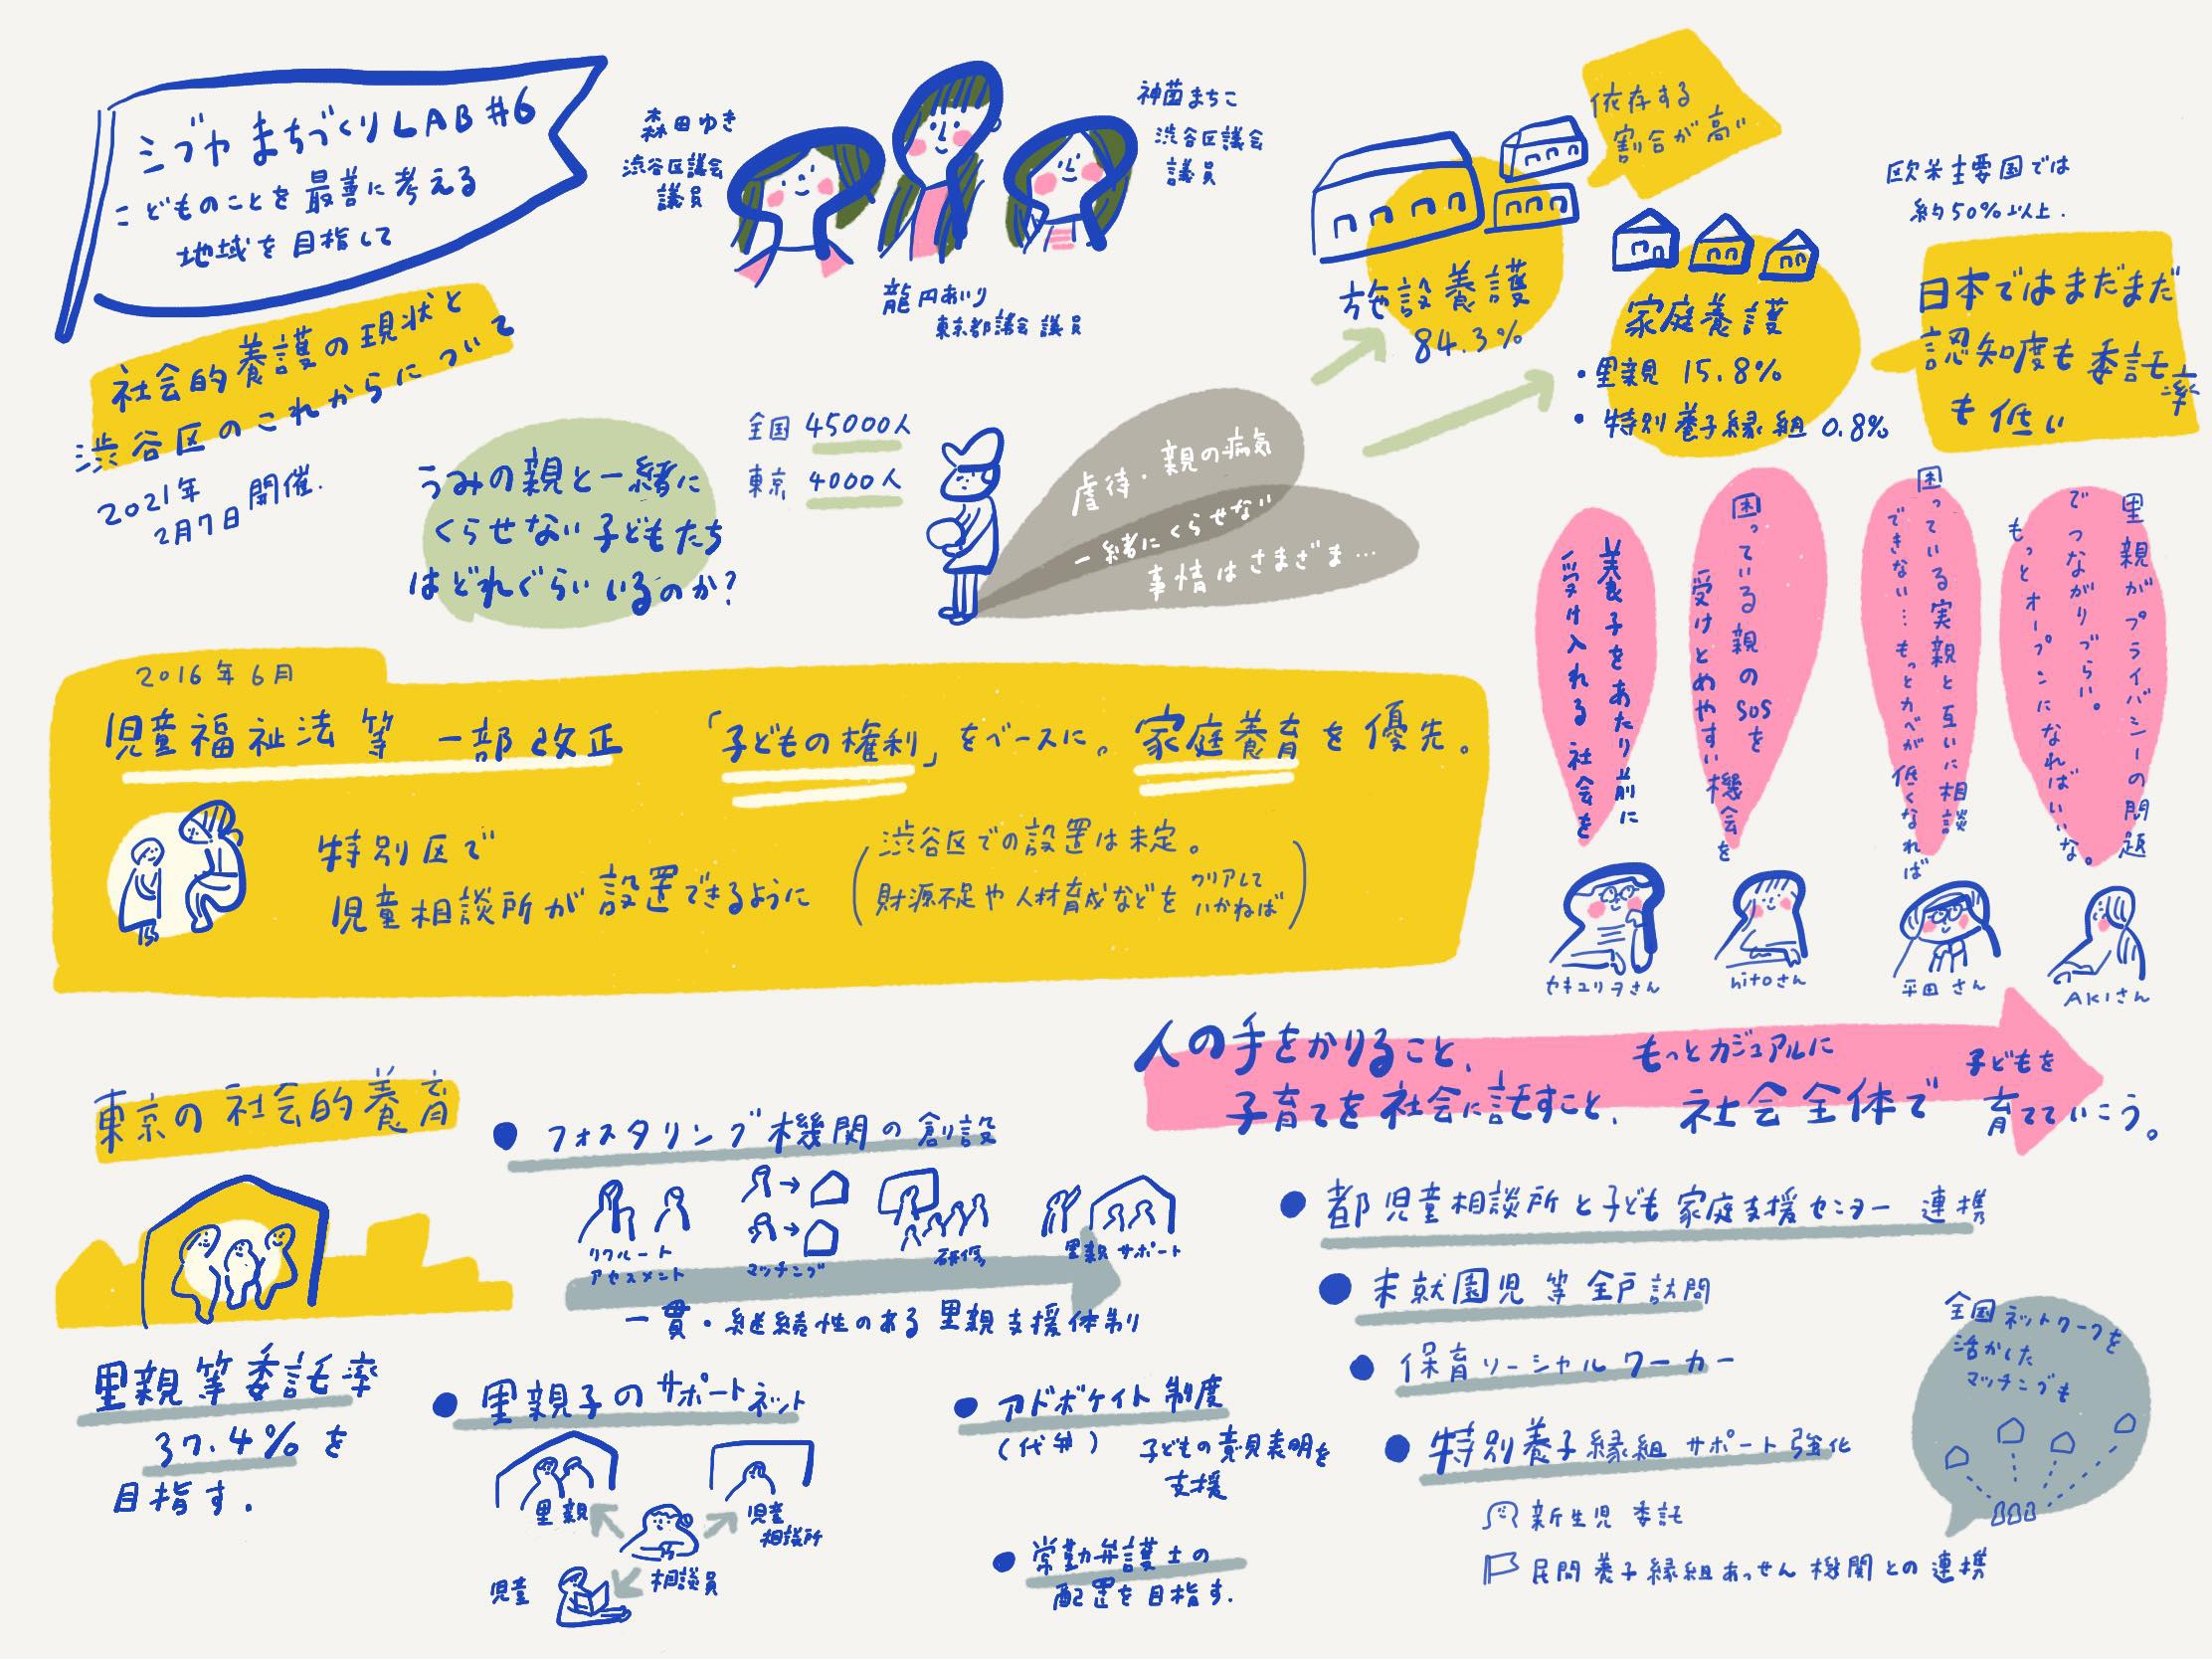 シブヤ まちづくりLAB #6
こどものことを 最善に考える
地域を目指して
社会的養護の現状と
渋谷区のこれからについて
2021年
2月7日 開催.
森田ゆき
渋谷区議会
議員
龍円あいり
東京都議会 議員
神薗まちこ
渋谷区議会
議員
うみの親と一緒に
くらせない 子どもたち
はどれぐらいいるのか?
全国 45000人
東京 4000人
虐待・親の病気
一緒にくらせない
事情はさまざま…
施設養護
84.3%
依存する
割合が高い
家庭養護
・里親 15.8%
・特別養子縁組 0.8%
欧米主要国では
約50%以上.
日本ではまだまだ
認知度も委託率
も低い
2016年6月
児童福祉法 等 一部改正
「子どもの権利」をベースに。家庭養育を優先。
特別区で
児童相談所が設置できるように
(渋谷区での設置は未定。
財源不足や人材育成などをクリアして
いかねば)
養子をあたり前に
受け入れる社会を
セキュリヲさん
困っている親のSOSを
受けとめやすい機会を
hitoさん
困っている実親と互いに相談
できない…もっとカベが低くなれば
平田さん
里親がプライバシーの問題
でつながりづらい。
もっとオープンになればいいな。
AKIさん
人の手をかりること、
子育てを社会に託すこと、
もっとカジュアルに
社会全体で
子どもを
育てていこう。
東京の社会的養育
里親等委託率
37.4%を
目指す.
● フォスタリング機関の創設
リクルート
アセスメント
マッチング
研修
里親サポート
一貫・継続性のある 里親支援体制
● 里親子のサポートネット
里親
児童
相談所
相談員
児童
● アドボケイト制度
(代弁) 子どもの意見表明を
支援
● 常勤弁護士の
配置を目指す.
● 都児童相談所と子ども家庭支援センター連携
● 未就園児等全戸訪問
● 保育ソーシャルワーカー
● 特別養子縁組サポート強化
新生児委託
民間養子縁組あっせん機関との連携
全国ネットワークを
活かした
マッチングも